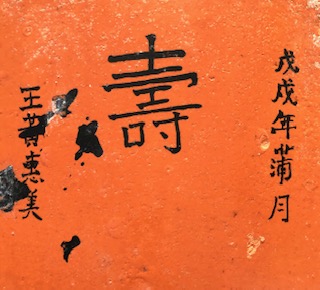 戊戌年蒲月
壽
王惠美